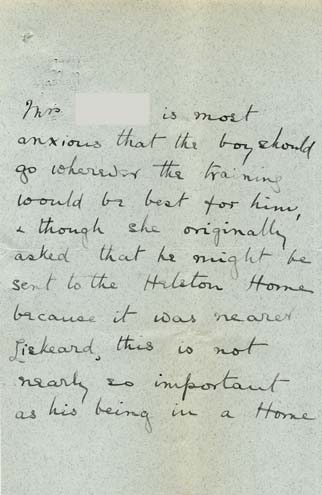 Mrs is most
anxious that the boy should
go wherever the training
would be best for him,
& though she originally
asked that he might be
sent to the Helston Home
because it was nearer
Liskeard, this is not
nearly so important
as his being in a Home